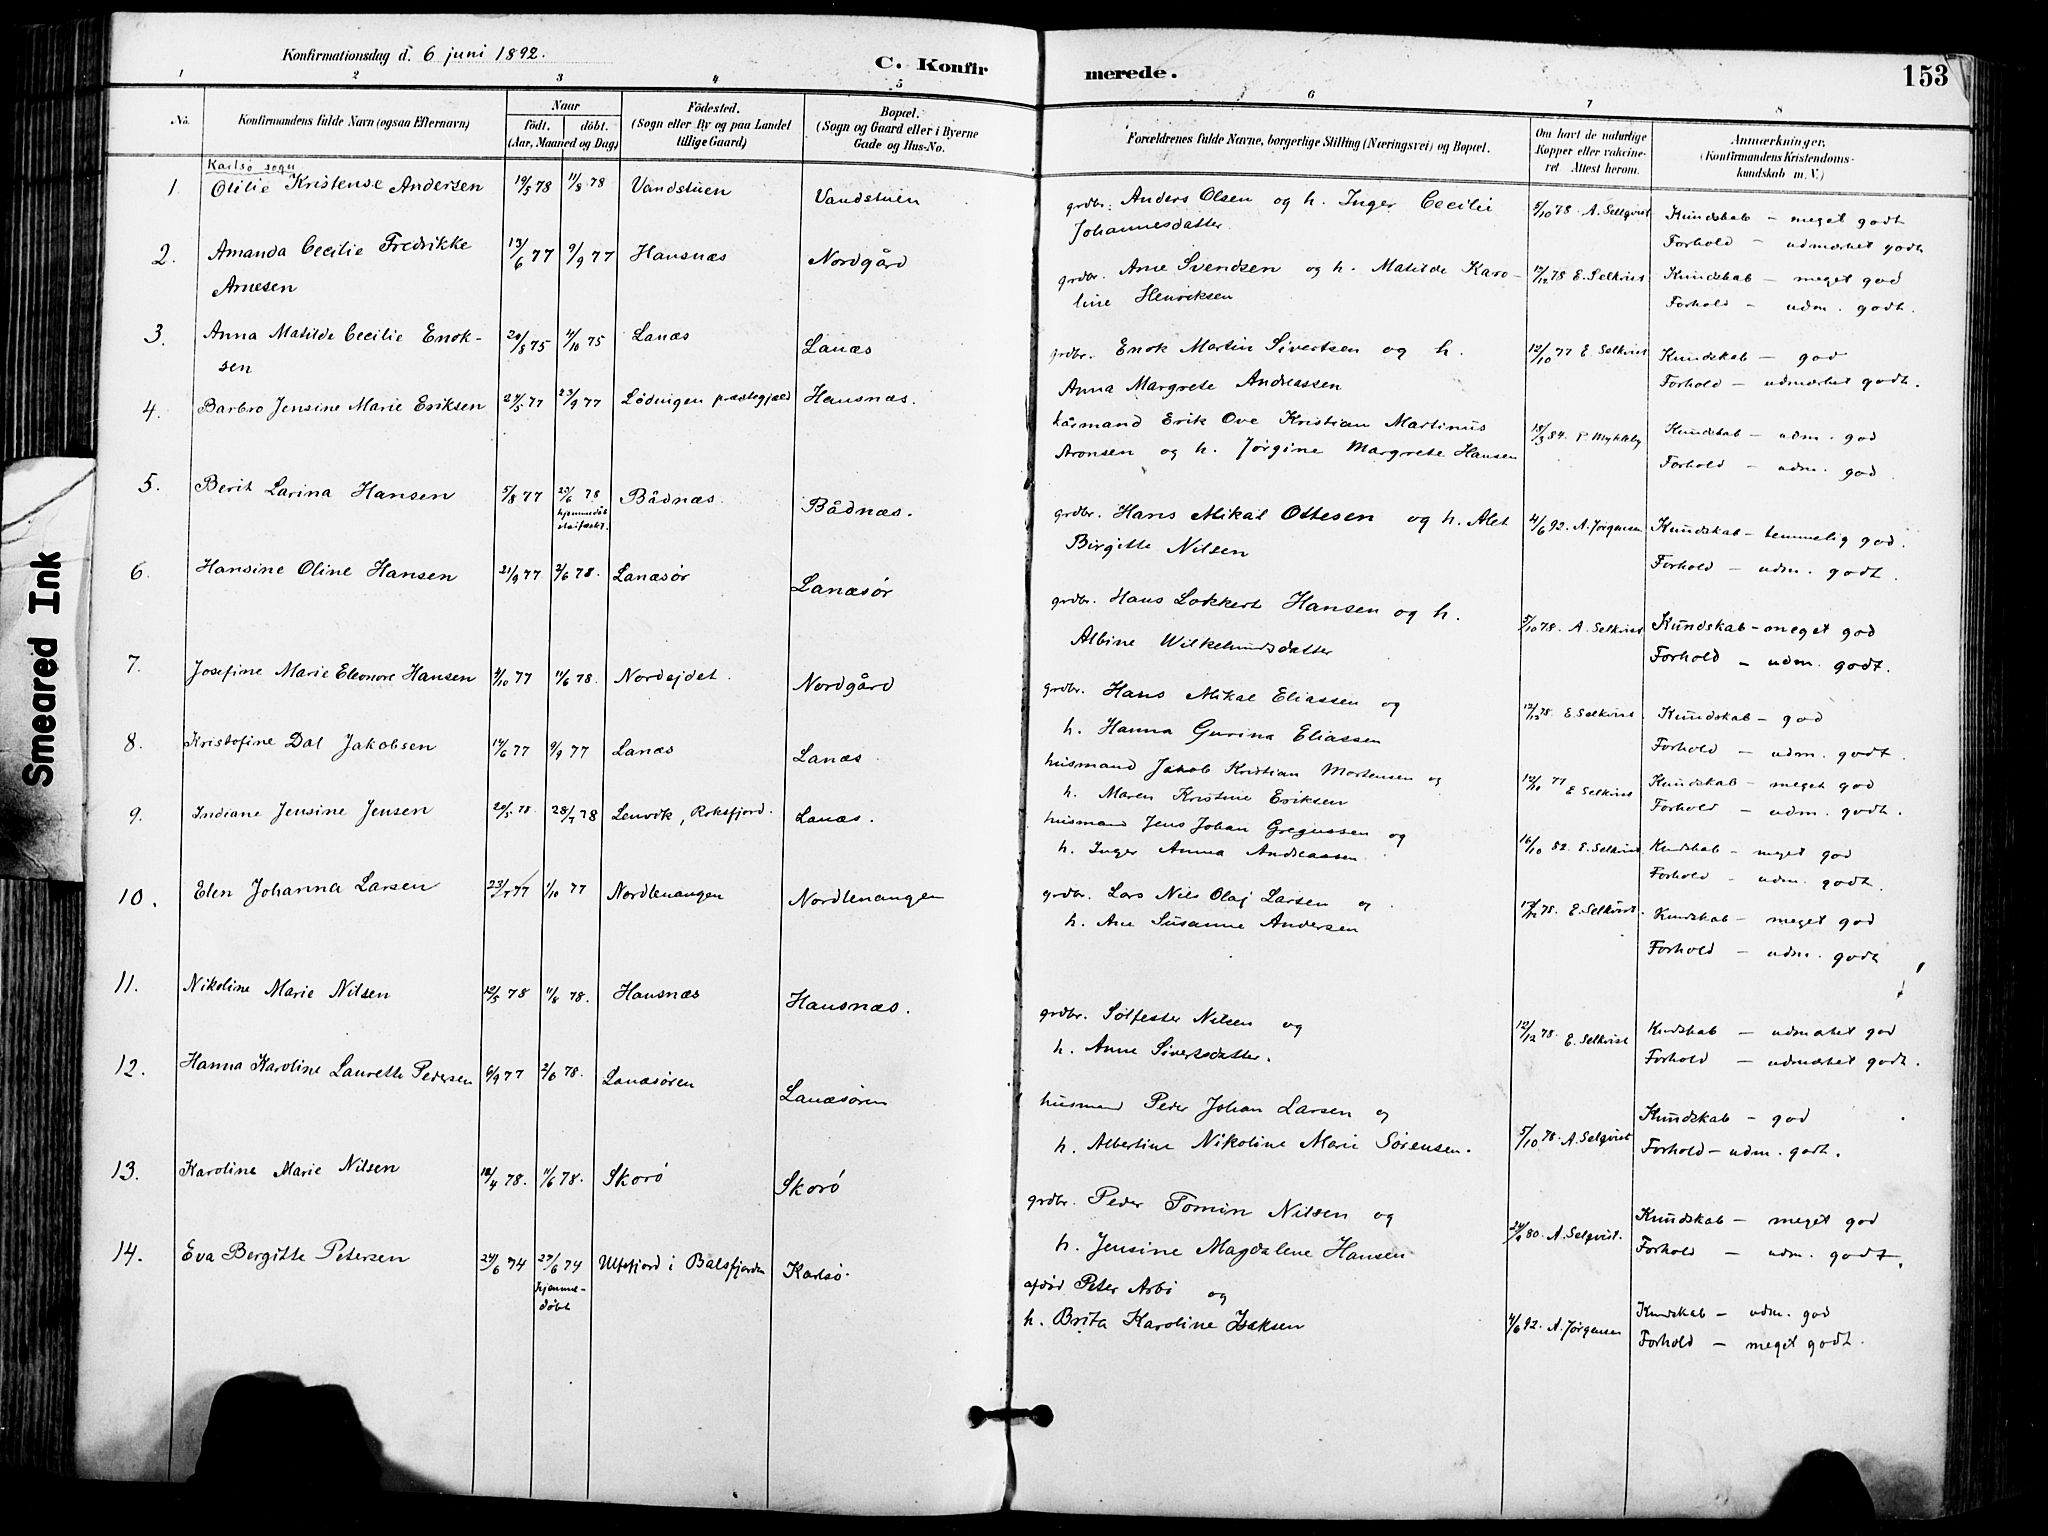 Konfirmationsdag d. 6 juni 1892.
C. Konfirmerede.
153
1 2 3 4 5 6 7 8
No.
Konfirmandens fulde Navn (ogsaa Efternavn)
Naar
födt. döbt.
(Aar, Maaned og Dag)
Födested.
(Sogn eller By og paa Landet
tillige Gaard)
Bopæl.
(Sogn og Gaard eller i Byerne
Gade og Hus-No.
Forældrenes fulde Navne, borgerlige Stilling (Næringsvei) og Bopæl.
Om havt de naturlige
Kopper eller vakcine-
ret Attest herom.
Anmærkninger.
(Konfirmandens Kristendoms-
kundskab m. V.)
Karlsö sogn
1. Otilie Kristense Andersen 19/5 78 11/8 78 Vandstuen Vandstuen
grdbr. Anders Olsen og h. Inger Cecilie
Johannesdatter.
5/10 78. A. Sellqvist
Kundskab – meget godt
Forhold – udmærket godt
2. Amanda Cecilie Fredrikke
Arnesen
13/6 77 9/9 77 Hansnæs Nordgård
grdbr. Arne Svendsen og h. Matilde Karo-
line Henriksen
12/12 78 E. Selkvist
Kundskab – meget god
Forhold – udm. godt.
3. Anna Matilde Cecilie Enok-
sen
20/8 75 4/10 75 Lanæs Lanæs
grdbr. Enok Martin Sivertsen og h.
Anna Margrete Andreassen
12/10 77 E. Selkvist
Kundskab – god
Forhold – udmærket godt.
4. Barbro Jensine Marie Eriksen 24/5 77 23/9 77 Lödingen præstegjæld Hansnæs.
húsmand Erik Ove Kristian Martinus
Aronsen og h. Jørgine Margrete Hansen
18/3 84. P. Mykleby
Kundskab – udm. god
Forhold – udm. god
5. Berit Larina Hansen 5/8 77 23/6 78
hjemmedöb
stadfæstet.
Bådnæs Bådnæs.
grdbr. Hans Mikal Ottesen og h. Alet
Birgitte Nilsen
4/6 92. A. Jørgensen
Kundskab – temmelig god.
Forhold – udm. godt.
6. Hansine Oline Hansen 21/9 77 2/6 78. Lanæsør Lanæsør
grdbr. Hans Lokkert Hansen og h.
Albine Wilhelmsdatter
5/10 78. A. Selkvist
Kundskab – meget god
Forhold – udm. godt.
7. Josefine Marie Eleonore Hansen 4/10 77 11/6 78. Nordejdet. Nordgård
grdbr. Hans Mikal Eliassen og
h. Hanna Gurina Eliassen
12/12 78. E. Selkvist.
Kundskab – god
Forhold – udm. godt.
8. Kristofine Dal Jakobsen 14/6 77 9/9 77 Lanæs Lanæs
húsmand Jakob Kristian Mortensen og
h. Maren Kristine Eriksen
12/10 77 E Selkvist
Kundskab – meget god
Forhold – udm. godt.
9. Indiane Jensine Jensen 20/5. 78. 28/7 78 Lenvik, Roksfjord. Lanæs.
húsmand Jens Johan Gregussen og
h. Inger Anna Andreassen.
16/10 82. E. Selkvist
Kundskab – meget god
Forhold – udm. godt.
10. Elen Johanna Larsen 23/7 77 1/10 77 Nordlenangen Nordlenangen
grdbr. Lars Nils Olaj Larsen og
h. Ane Susanne Andersen
12/12 78. E. Selkvist.
Kundskab – meget god
Forhold – udm. godt
11. Nikoline Marie Nilsen 12/5 78 11/8 78. Hansnæs Hansnæs.
grdbr. Sölfester Nilsen og
h. Anne Sivertsdatter.
12/12 78. E. Selkvist
Kundskab – udmærket god
Forhold – udmærket godt.
12. Hanna Karoline Laurette Pedersen 6/9 77 2/6 78. Lanæsören Lanæsören
húsmand Peder Johan Larsen og
h. Albertine Nikoline Marie Sörensen.
5/10 78. A. Selqvist
Kundskab – god
Forhold – udm. godt.
13. Karoline Marie Nilsen 18/4 78. 11/6 78. Skorö Skorö
grdbr. Peder Tomin Nilsen og
h. Jensine Magdalene Hansen
80. A. Selqvist.
Kundskab – meget god
Forhold – udm. godt.
14. Eva Bergitte Petersen 24/6 74 27/6 74
hjemme-
döbt
Ulfsfjord i Balsfjorden Karlsö.
afdöd Peter Arbö og
h. Brita Karoline Isaksen
4/6 92. A. Jørgensen
Kundskab – udm. god
Forhold – meget godt.
Smeared Ink